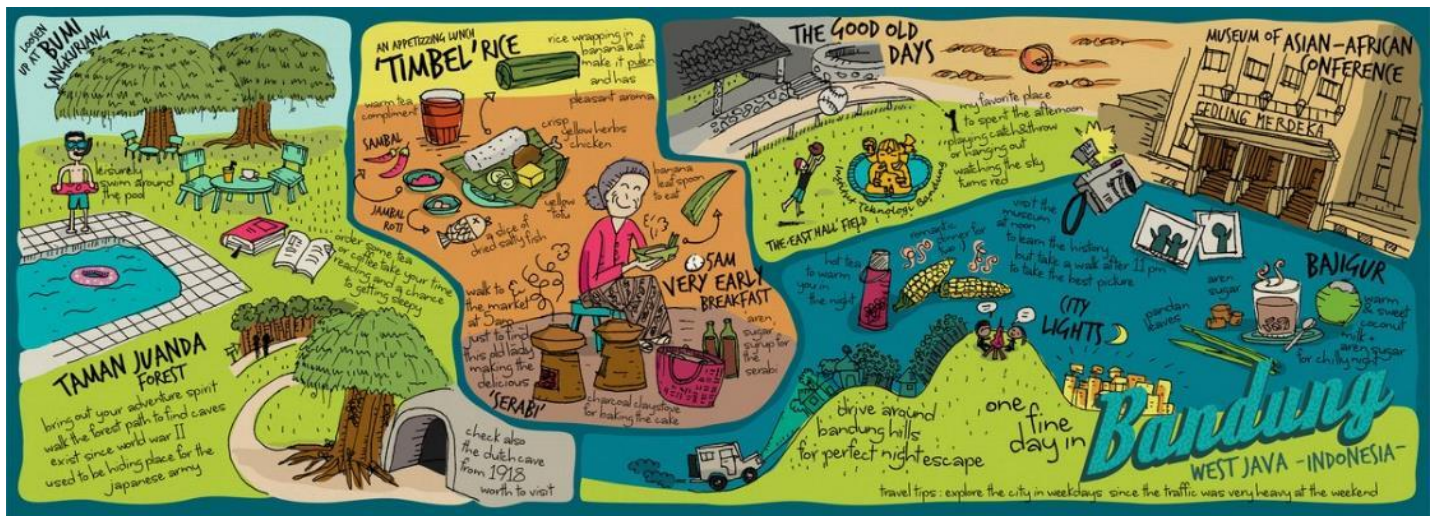 LOOSEN
UP AT BUMI
SANGKURIANG
leisurely
swim around
the pool
order some tea
or coffee take your time
reading and a chance
to getting sleepy
TAMAN JUANDA
FOREST
bring out your adventure spirit
walk the forest path to find caves
exist since world war II
used to be hiding place for the
japanese army
check also
the dutch cave
from 1918
worth to visit
AN APPETIZZING LUNCH
'TIMBEL' RICE
rice wrapping in
banana leaf
make it pulen
and has
pleasant aroma
warm tea
compliment
SAMBAL
crisp
yellow herbs
chicken
yellow
tofu
JAMBAL
ROTI
a slice of
dried salty fish
banana
leaf spoon
to eat
5AM
VERY EARLY
BREAKFAST
walk to
the market
at 5am
just to find
this old lady
making the
delicious
'SERABI'
charcoal claystove
for baking the cake
aren
sugar
syrup for
the
serabi
THE GOOD OLD
DAYS
my favorite place
to spent the afternoon
playing catch&throw
or hanging out
watching the sky
turns red
Institut Teknologi Bandung
THE EAST HALL FIELD
MUSEUM OF ASIAN-AFRICAN
CONFERENCE
GEDUNG MERDEKA
visit the
museum
at noon
to learn the history
but take a walk after 11 pm
to take the best picture
hot tea
to warm
you in
the night
romantic
dinner for
two
CITY
LIGHTS
BAJIGUR
aren
sugar
pandan
leaves
warm
& sweet
coconut
milk +
aren sugar
for chilly night
drive around
bandung hills
for perfect nightescape
one
fine
day in
Bandung
WEST JAVA -INDONESIA-
travel tips : explore the city in weekdays since the traffic was very heavy at the weekend